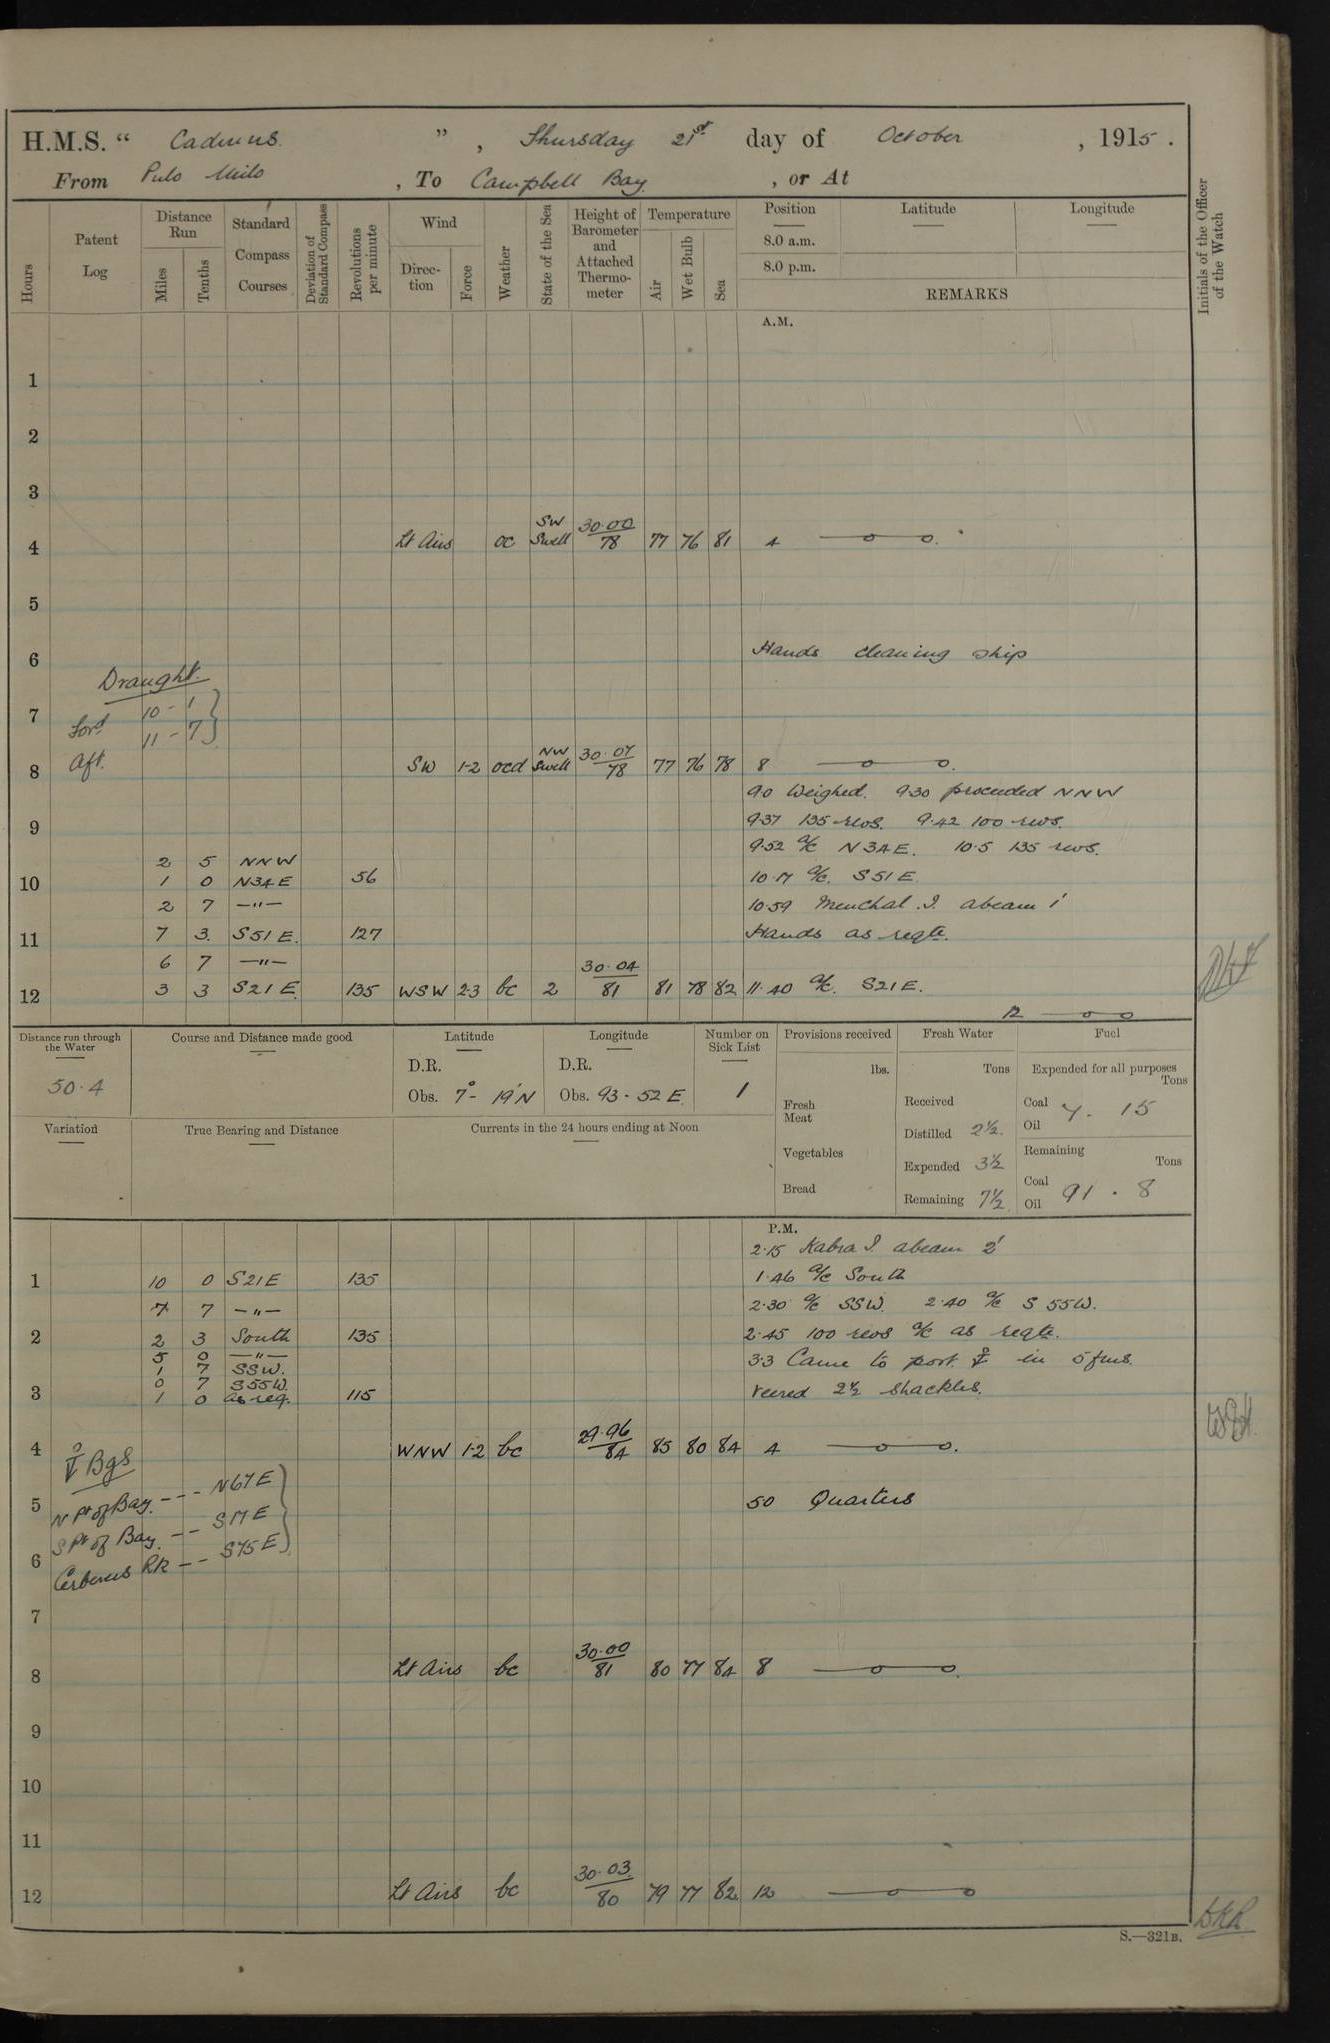 H.M.S. “ Cadmus ” , Thursday 21st day of October , 1915 .
From Pulo Milo , To Campbell Bay , or At
Hours
Patent Log
Distance Run
Miles
Tenths
Standard Compass Courses
Deviation of Standard Compass
Revolutions per minute
Wind
Direc-tion
Force
Weather
State of the Sea
Height of Barometer and Attached Thermo-meter
Temperature
Air
Wet Bulb
Sea
Position Latitude Longitude
8.0 a.m.
8.0 p.m.
REMARKS
Initials of the Officer of the Watch
A.M.
1
2
3
4 Lt Airs oc SW Swell 30.00/78 77 76 81 4
5
6 Hands cleaning ship
Draught.
7 Ford 10 - 1
Aft. 11 - 7
8 SW 1-2 ocd NW Swell 30.07/78 77 76 78 8
9.0 Weighed. 9.30 proceeded NNW
9 9.37 135 revs. 9.42 100 revs.
9.52 a/c N34E. 10.5 135 revs.
2 5 NNW
10 1 0 N34E 56 10.17 a/c. S51E.
2 7 —"— 10.59 Menchal I. abeam 1'
11 7 3 S51E. 127 Hands as reqte.
6 7 —"—
12 3 3 S21E. 135 WSW 2-3 bc 2 30.04/81 81 78 82 11.40 a/c. S21E.
12
Distance run through the Water
50.4
Course and Distance made good
Latitude
D.R.
Obs. 7° - 19'N
Longitude
D.R.
Obs. 93 - 52 E.
Number on Sick List
1
Provisions received
lbs.
Fresh Meat
Vegetables
Bread
Fresh Water
Tons
Received
Distilled 2½
Expended 3½
Remaining 7½
Fuel
Expended for all purposes
Tons
Coal
Oil
7 . 15
Remaining
Tons
Coal
Oil
91 . 8
Variation
True Bearing and Distance
Currents in the 24 hours ending at Noon
P.M.
2.15 Kabra I. abeam 2'
1 10 0 S21E 135 1.46 a/c South
7 7 —"— 2.30 a/c SSW. 2.40 a/c S 55W.
2 2 3 South 135 2.45 100 revs a/c as reqte.
5 0 —"—
1 7 SSW. 3.3 Came to port in 5 fms.
0 7 S55W.
3 1 0 as req. 115 veered 2½ shackles.
4 WNW 1-2 bc 29.96/84 85 80 84 4
Bgs
N Pt of Bay. --- N67E
5 50 Quarters
S Pt of Bay. --- S17E
6 Cerberus Rk --- S75E
7
8 Lt Airs bc 30.00/81 80 77 84 8
9
10
11
12 Lt Airs bc 30.03/80 79 77 82 12
S.—321B.